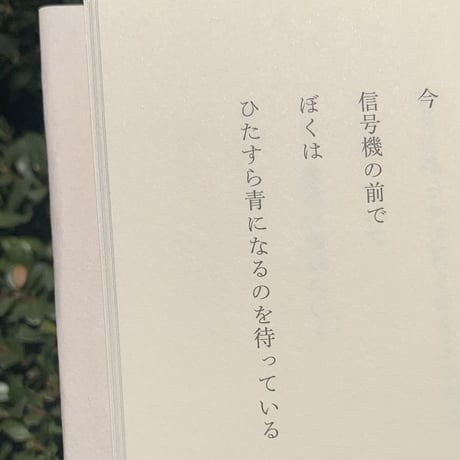 今
信号機の前で
ぼくは
ひたすら青になるのを待っている